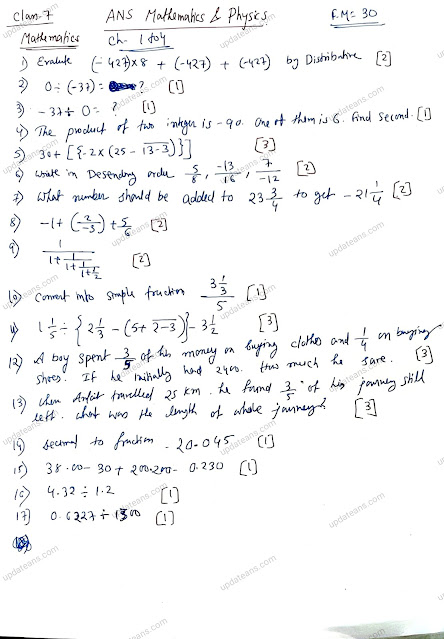 Class-7 ANS Mathematics & Physics F.M= 30
Mathematics ch- 1 to 4
1) Evalute (-427)×8 + (-427) + (-427) by Distributive [2]
2) 0 ÷ (-37) = ? [1]
3) -37 ÷ 0 = ? [1]
4) The product of two integer is -90. one of them is 6. find second. [1]
5) 30+[{-2×(25 - 13-3)}] [3]
6) write in Desending order 5/8, -13/16, 7/-12 [2]
7) What number should be added to 23 3/4 to get -21 1/4 [2]
8) -1+(2/-3)+5/6 [2]
9) 1/1+1/1+1/1+1/2 [2]
10) Convert into simple fraction 3 1/3/5 [1]
11) 1 1/5 ÷ {2 1/3 - (5+ 2-3)} - 3 1/2 [3]
12) A boy spent 3/5 of his money on buying clothes and 1/4 on buying
shoes. If he initially had 2400. How much he save. [3]
13) when travelled 25 km. he found 3/5 of his journey still
left. what was the length of whole journey? [3]
14) decimal to fraction - 20.045 [1]
15) 38.00 - 30 + 200.200 - 0.230 [1]
16) 4.32 ÷ 1.2 [1]
17) 0.6227 ÷ 1300 [1]
updateans.com